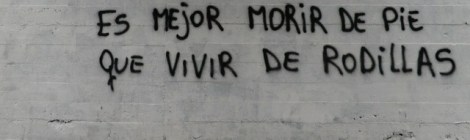 ES MEJOR MORIR DE PIE
QUE VIVIR DE RODILLAS